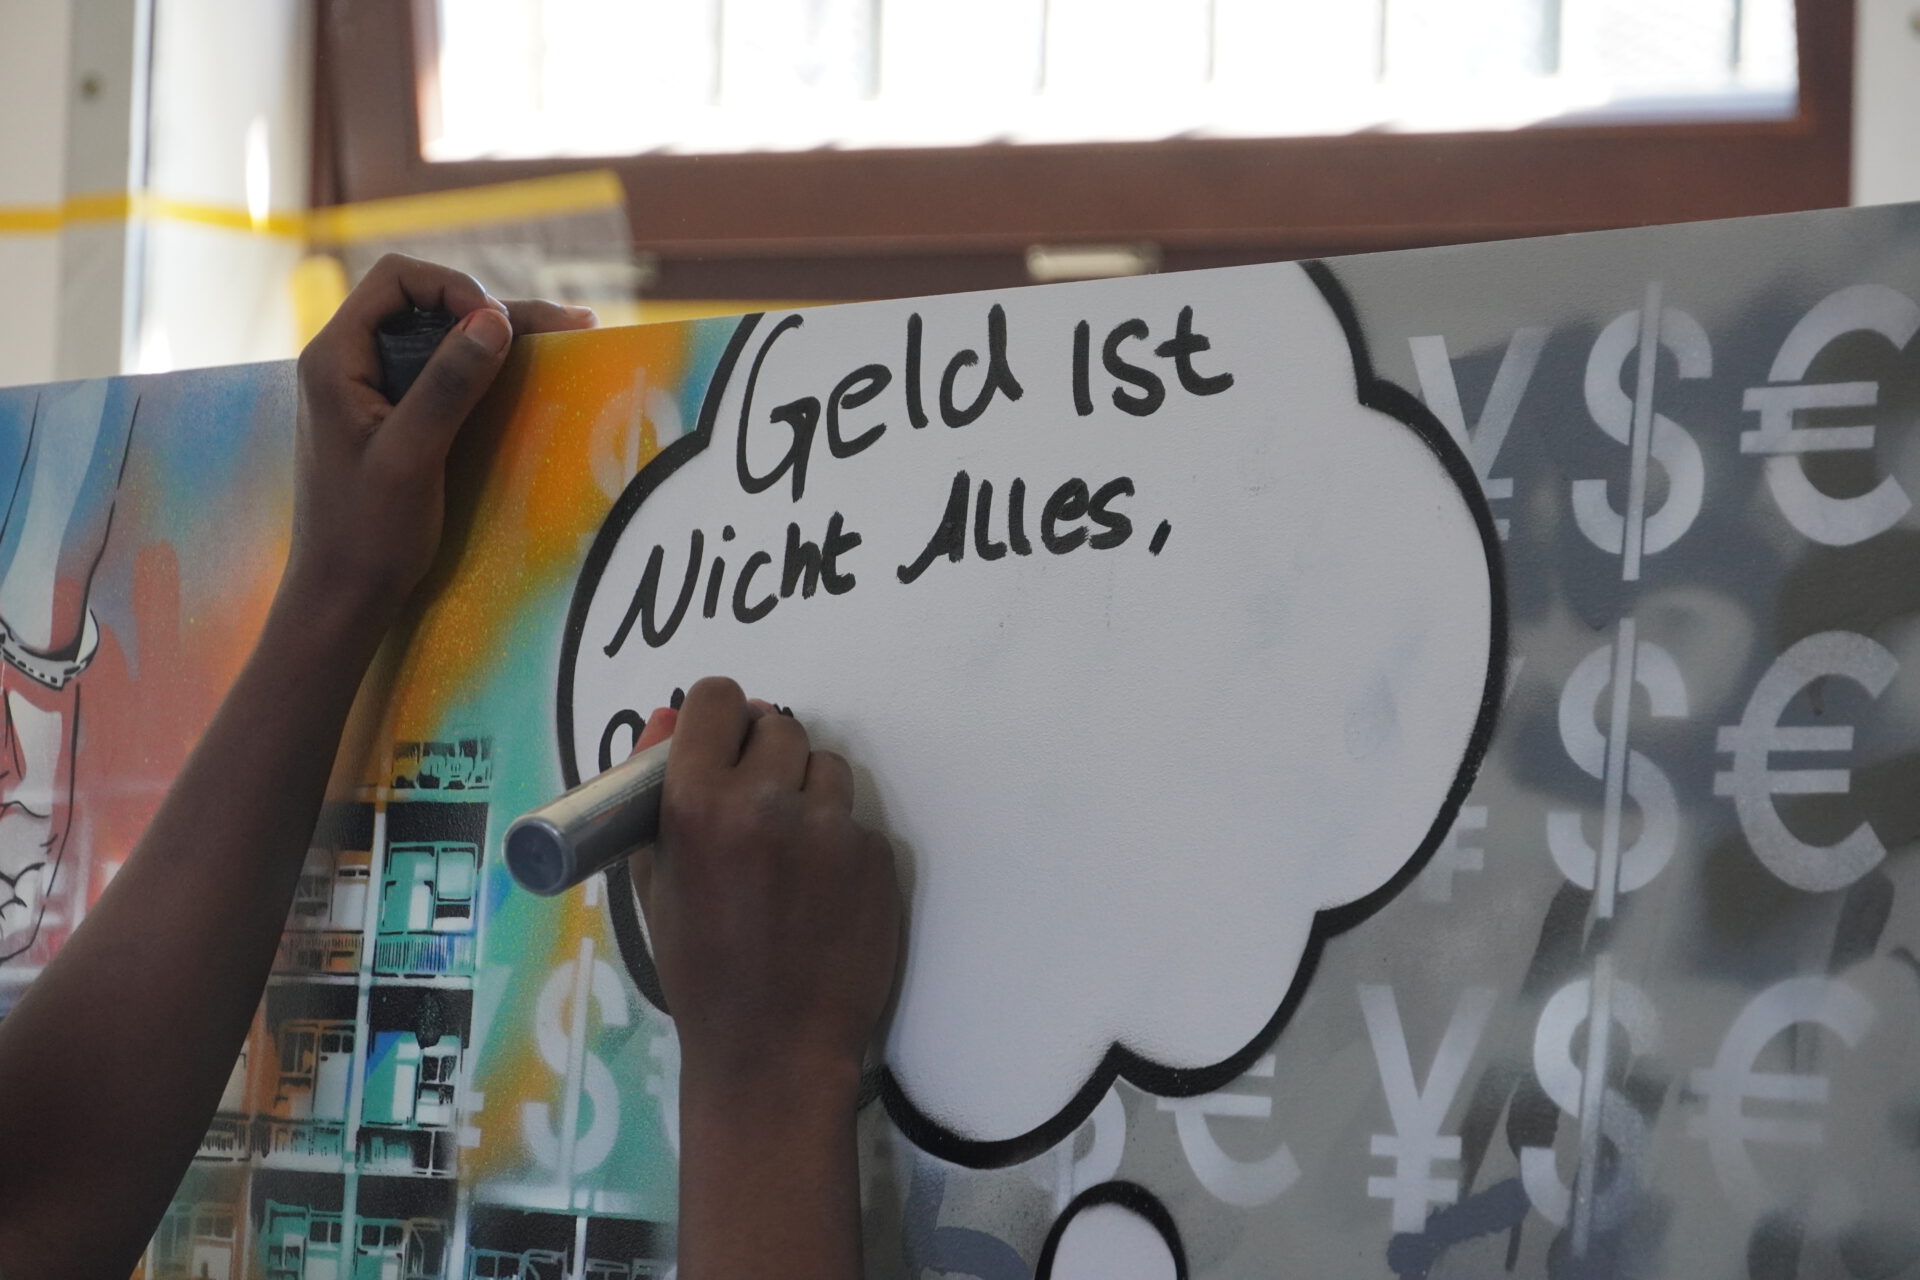 Geld ist
Nicht Alles,
¥ $ €
$ €
¥ $ €
$ €